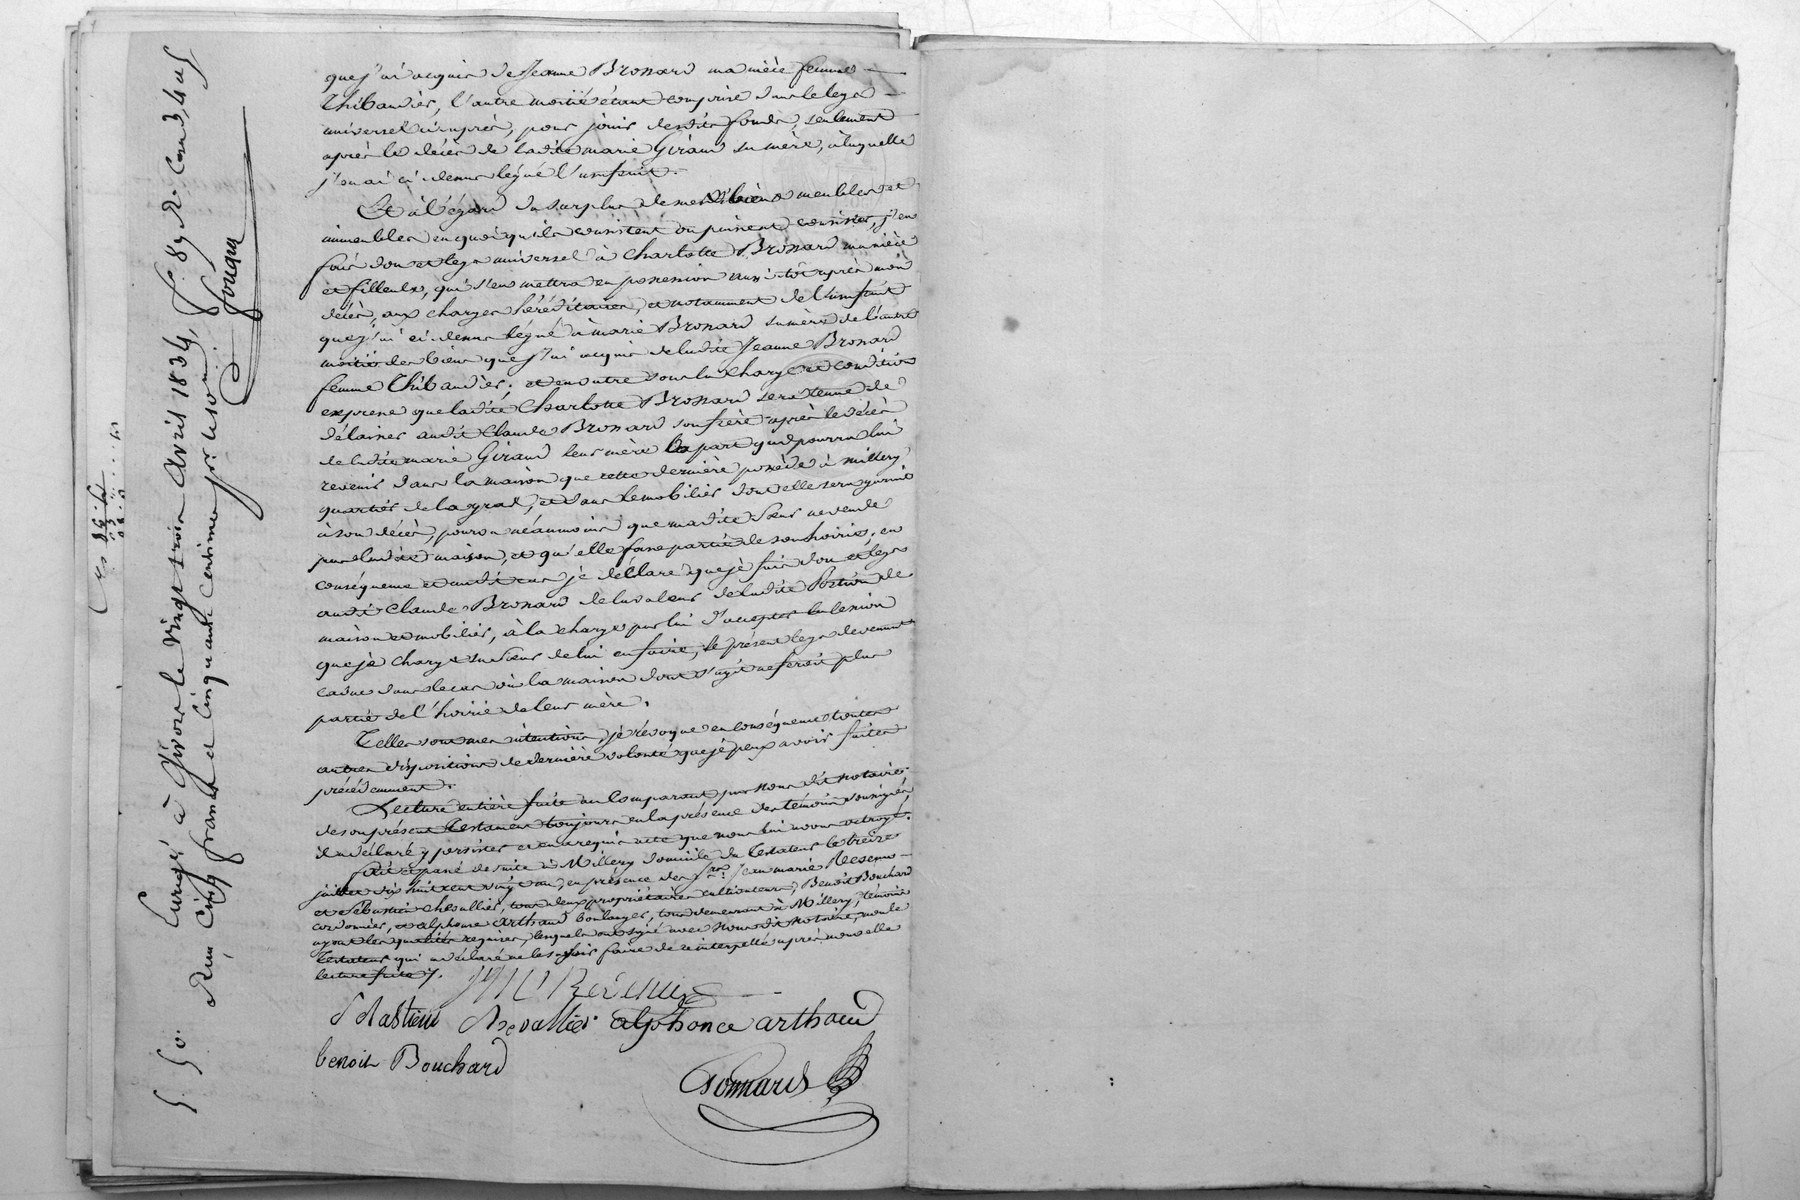 que j'ai acquis de Jeanne Bronard ma nièce femme
Thibaudier, l'autre moitié étant comprise dans le legs
universel ci après, pour jouir desdits fonds, seulement
après le décès de ladite marie Giraud sa mère, à laquelle
j'en ai ci dessus légué l'usufruit.
Et à l'égard du surplus de mes biens meubles et
immeubles en quoi qu'ils consistent ou puissent consister, j'en
fais don et legs universel à Charlotte Bronard ma nièce
et filleule, qui s'en mettra en possession aussitôt après mon
décès, aux charges héréditaires, et notamment de l'usufruit
que j'ai ci dessus légué à marie Bronard sa mère de l'autre
moitié des biens que j'ai acquis de ladite Jeanne Bronard
femme Thibaudier; et en outre sous la charge et condition
expresse que ladite Charlotte Bronard sera tenue de
délaisser audit Claude Bronard son frère après le décès
de ladite marie Giraud leur mère la part qui pourra lui
revenir dans la maison que cette dernière possède à millery
quartier de la grat, et dans le mobilier dont elle sera garnie
à son décès, pourvu néanmoins que madite Sœur ne vende
pas ladite maison, et qu'elle fasse partie de son hoirie; en
conséquence et audit cas je déclare que je fais don et legs
audit Claude Bronard de la valeur de ladite Portion de
maison et mobilier, à la charge par lui d'accepter la cession
que je charge sa Sœur de lui en faire, le présent legs devenant
caduc dans le cas où la maison dont s'agit ne feroit plus
partie de l'hoirie de leur mère.
Telles sont mes intentions, je révoque en conséquence toutes
autres dispositions de dernière volonté que je peux avoir faites
précédemment.
Lecture entière faite au Comparant par Nous dit notaire
de son présent Testament toujours en la présence des témoins soussignés,
il a déclaré y persister et en a requis acte que nous lui avons octroyé.
fait et passé de suite à Millery domicile du Testateur le treize
juillet dix huit cent vingt un, en présence des Srs Jean marie
et Sébastien Chevallier, tous deux propriétaires cultivateurs, Benoit Bouchard
cordonnier, et alphonse Arthaud boulanger, tous demeurant à Millery, témoins
ayant les qualités requises, lesquels ont signé avec Nous dit Notaire, non le
Testateur qui a déclaré ne le savoir faire de ce interpellé après nouvelle
lecture faite.
Sebastien Chevallier alphonce arthaud
benoit Bouchard
Enregé à Givors le Vingt trois Avril 1834, f.° 89 R.° Case 3, 4 et 5
Reçu Cinq francs et Cinquante Centimes pr. le soin.